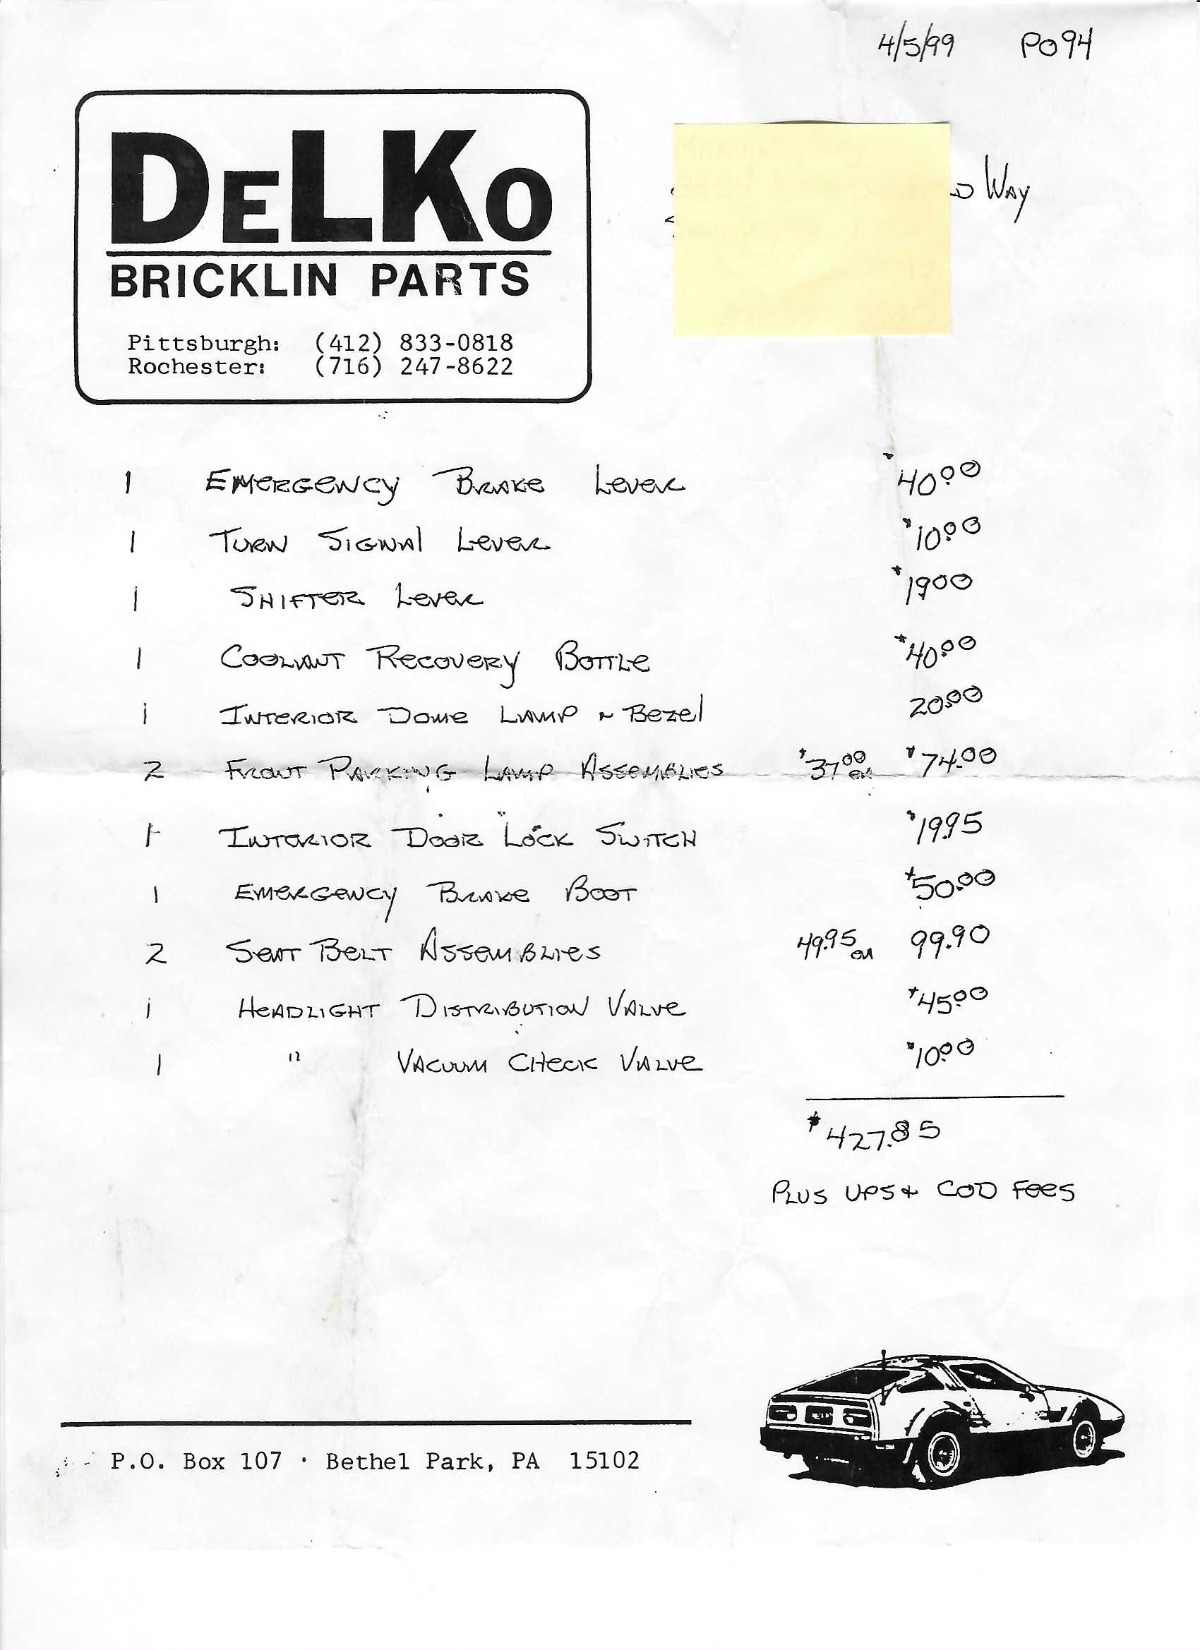 4/5/99 PO94
DELKO
BRICKLIN PARTS
Pittsburgh: (412) 833-0818
Rochester: (716) 247-8622
Way
1 Emergency Brake Lever $40.00
1 Turn Signal Lever $10.00
1 Shifter Lever $19.00
1 Coolant Recovery Bottle $40.00
1 Interior Dome Lamp ~ Bezel 20.00
2 Front Parking Lamp Assemblies $37.00 ea $74.00
1 Interior Door Lock Switch $19.95
1 Emergency Brake Boot $50.00
2 Seat Belt Assemblies 49.95 ea 99.90
1 Headlight Distribution Valve $45.00
1 " Vacuum Check Valve $10.00
$427.85
Plus UPS + COD Fees
P.O. Box 107 · Bethel Park, PA 15102